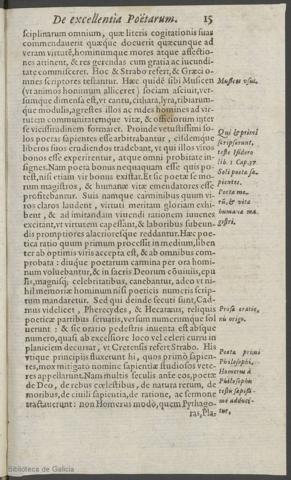 De excellentia Poëtarum. 15
sciplinarum omnium, quæ literis cogitationis suas
commendauerit quæque docuerit quæcunque ad
veram virtutē, hominumque mores atque affectio-
nes attinent, & res gerendas cum gratia ac iucundi-
tate commisceret. Hoc & Strabo refert, & Græci o-
mnes scriptores testantur. Hæc quidē sibi Musicen
Musices vsus.
(vt animos hominum alliceret) sociam asciuit, ver-
susque dimensa est, vt cantu, cithara, lyra, tibiarum-
que modulis, agrestes illos ac rudes homines ad vir-
tutem communitatemque vitæ, & officiorum inter
se vicissitudinem formaret. Proinde vetustissimi so-
los poetas sapientes esse arbitrabantur, eisdemque
liberos suos erudiendos tradebant, vt qui illos viros
bonos esse experirentur, atque omni probitate in-
signes. Nam poeta bonus nequaquam esse quis po-
test, nisi etiam vir bonus existat. Et sic poetæ se mo-
rum magistros, & humanæ vitæ emendatores esse
profitebantur. Suis namque carminibus quum vi-
ros claros laudent, virtuti meritam gloriam exhi-
bent, & ad imitandam viuendi rationem iuuenes
excitant, vt virtutem capessant, & laboribus subeun-
dis promptiores alacrioresque reddantur. Hæc poe-
tica ratio quum primum processit in medium, liben
ter ab optimis viris accepta est, & ab omnibus com-
probata: diuque poetarum camina per ora homi-
num voluebantur, & in sacris Deorum cōuiuiis, epu
lis, magnisq; celebritatibus, canebantur, adeo vt ni-
hil memoriæ hominum nisi poeticis numeris scrip-
tum mandaretur. Sed qui deinde secuti sunt, Cad-
mus videlicet, Pherecydes, & Hecatæus, reliquis
poeticæ partibus seruatis, versum numerumque sol
uerunt: & sic oratio pedestris inuenta est absque
numero, quasi ab excelsiore loco vel celeri curru in
planiciem decurrat, vt Cretensis refert Strabo. His
vtique principiis fluxerunt hi, quos primò sapien-
tes, mox mitigato nomine sapientiæ studiosos vete-
res appellarunt. Nam multis seculis ante eos, poetæ
de Deo, de rebus cœlestibus, de natura rerum, de
moribus, de ciuili sapientia, de ratione, ac sermone
tractauerunt: non Homerus modò, quem Pythago-
ras, Pla-
Qui & primi
scripserunt,
teste Isidoro
lib. 1 Cap. 37
Soli poeta sa-
pientes.
Poeta mo-
rū, & vita
humana ma
gistri.
Prosa oratio,
ni origo.
Poeta primi
Philosophi,
Homerus à
Philosophis
testis sapissi-
mè adduci-
tur,
Biblioteca de Galicia